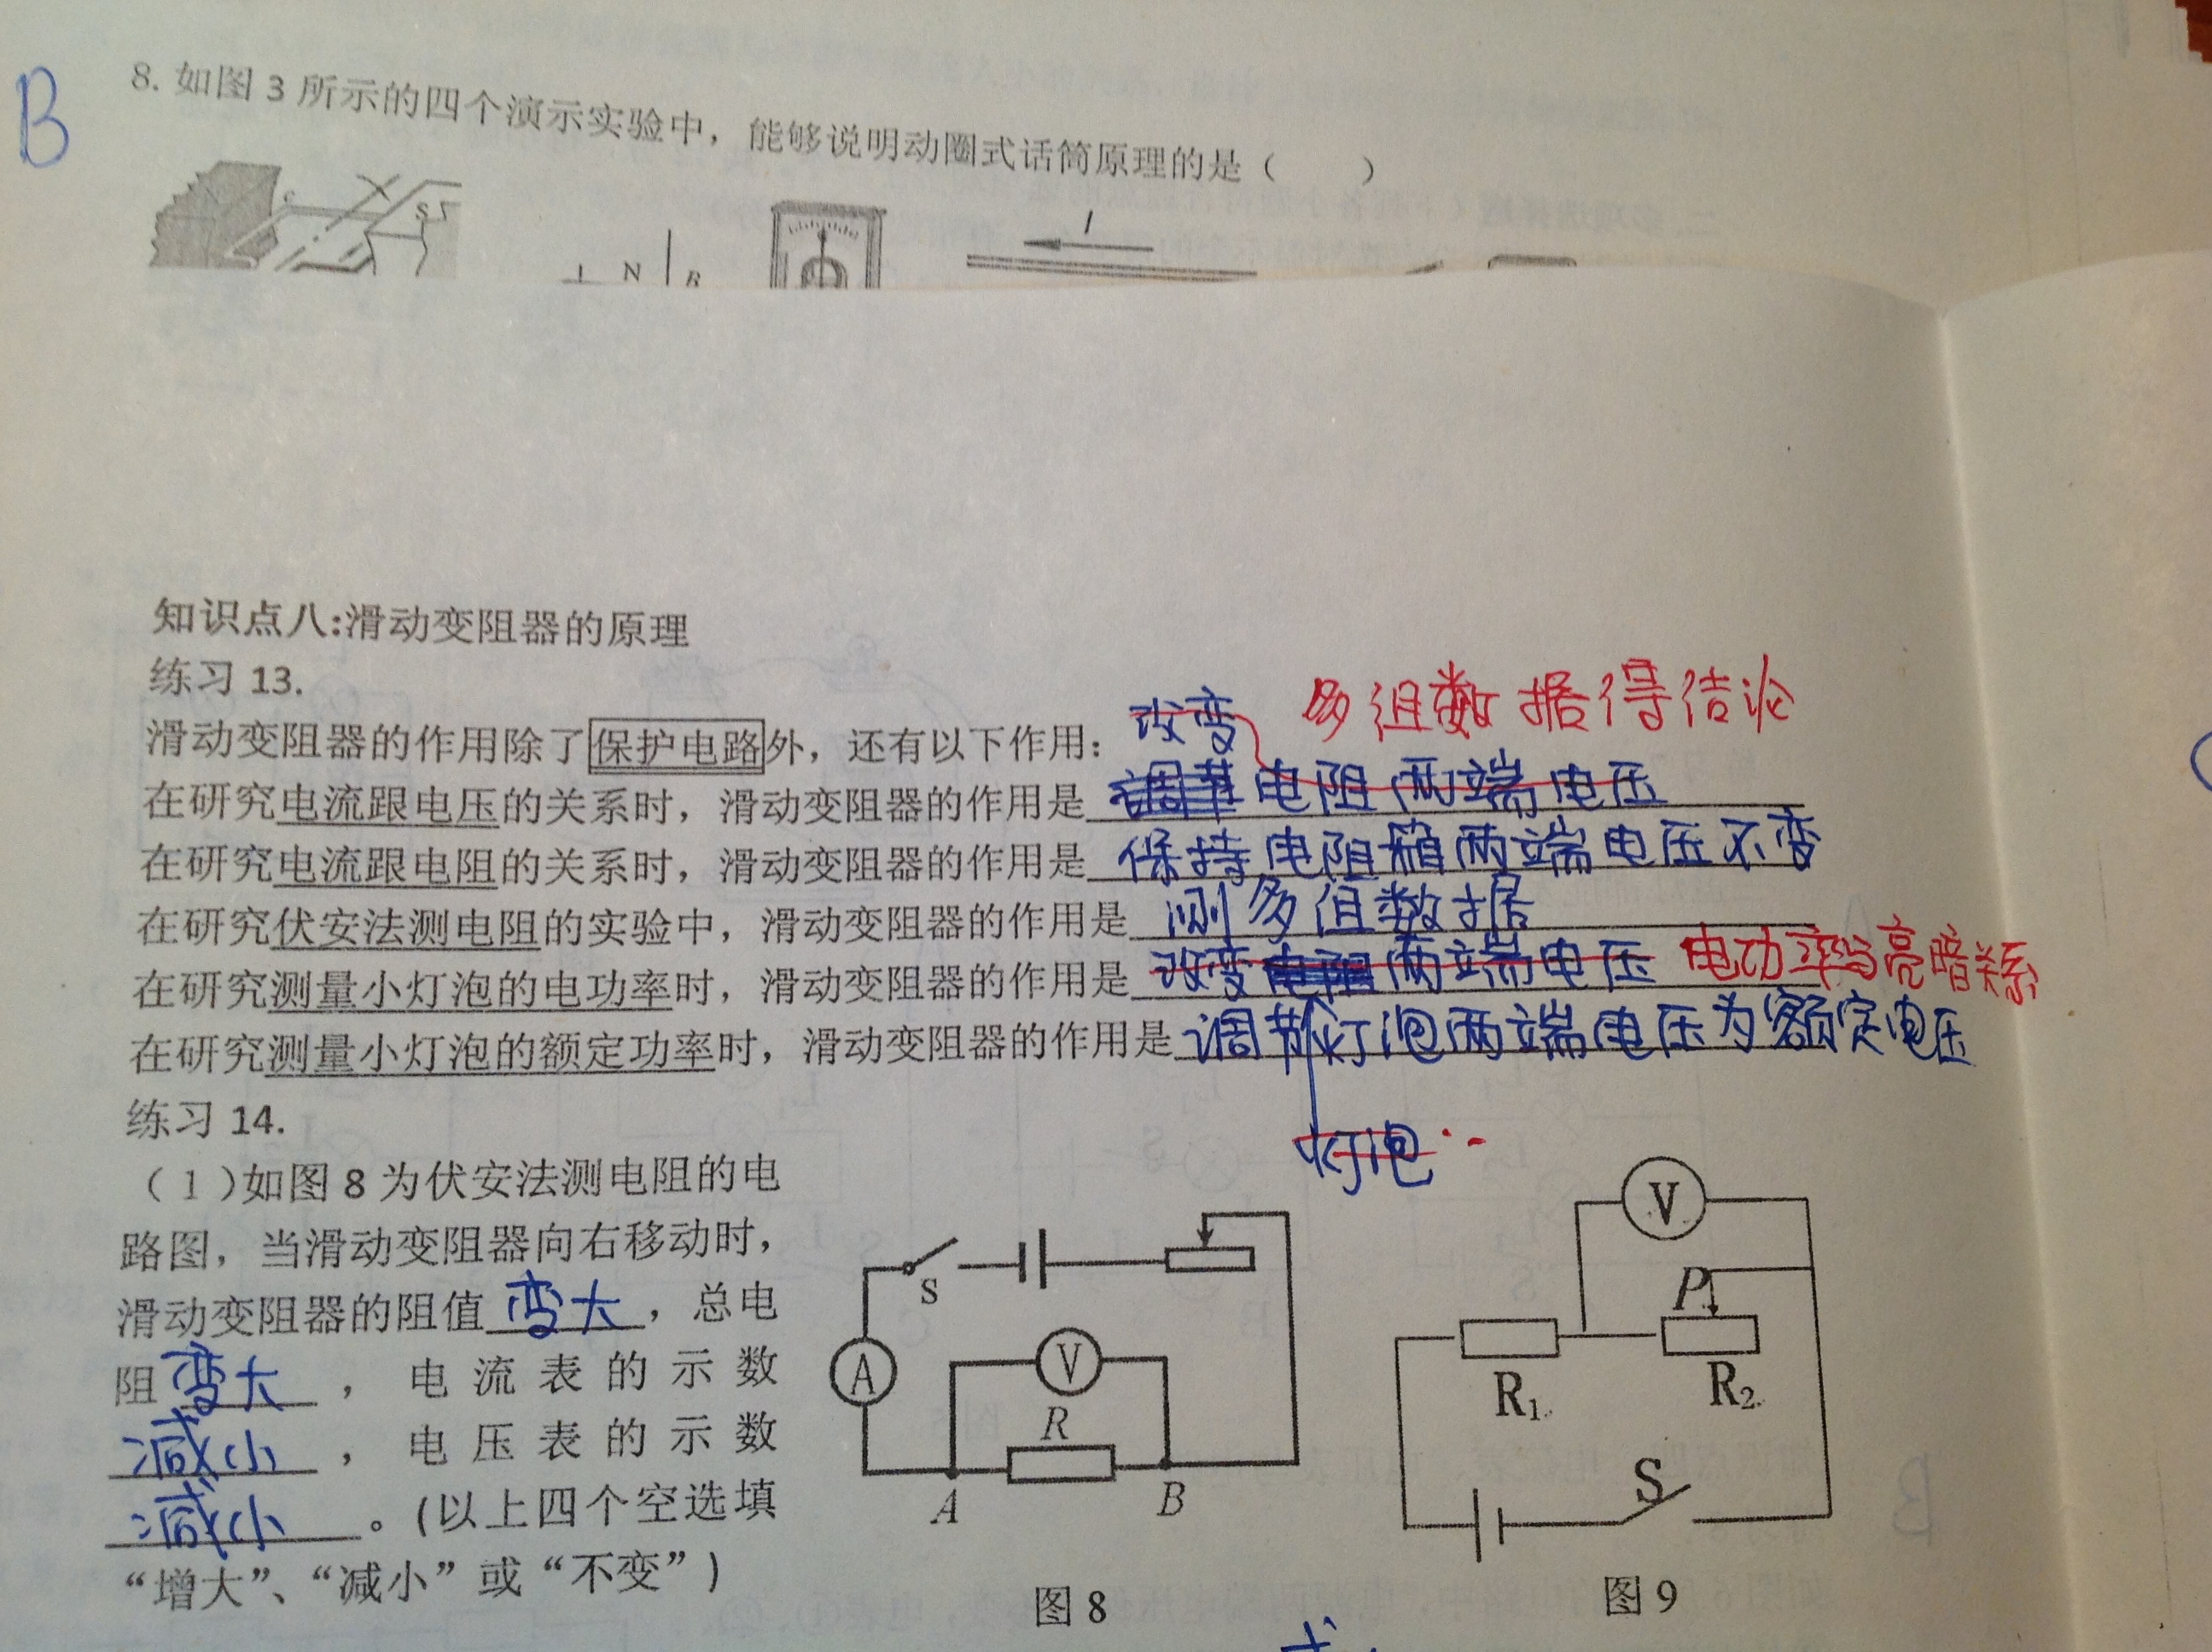 B
8. 如图 3 所示的四个演示实验中，能够说明动圈式话筒原理的是（　　）
S
I
N
B
知识点八:滑动变阻器的原理
练习 13.
改变 多组数据得结论
滑动变阻器的作用除了保护电路外，还有以下作用：
在研究电流跟电压的关系时，滑动变阻器的作用是 调节 电阻两端电压
在研究电流跟电阻的关系时，滑动变阻器的作用是 保持电阻箱两端电压不变
在研究伏安法测电阻的实验中，滑动变阻器的作用是 测多组数据
在研究测量小灯泡的电功率时，滑动变阻器的作用是 改变电阻两端电压 电功率与亮暗关系
在研究测量小灯泡的额定功率时，滑动变阻器的作用是 调节灯泡两端电压为额定电压
灯泡
练习 14.
（1）如图 8 为伏安法测电阻的电
路图，当滑动变阻器向右移动时，
滑动变阻器的阻值 变大 ，总电
阻 变大 ，电流表的示数
减小 ，电压表的示数
减小 。(以上四个空选填
“增大”、“减小”或“不变”)
S
A
V
R
A
B
图 8
V
P
R₁
R₂
S
图 9